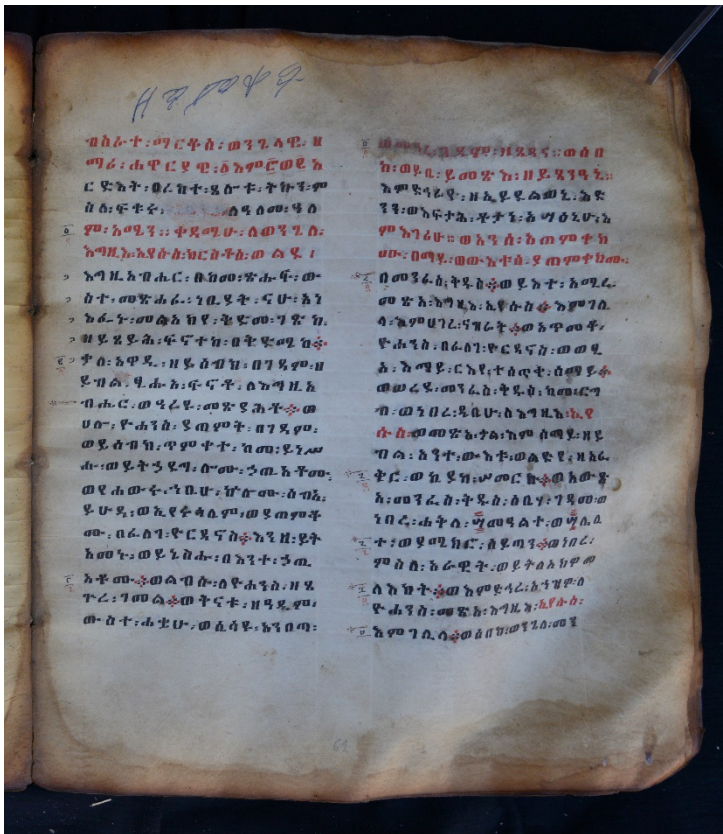 ብስራተ፡ ማርቆስ፡ ወንጌላዊ፡ ዘ
ማሪ፡ ሐዋርያዊ፡ ፩እም፸ወ፪ አ
ርድእት፡ በረከተ፡ ጸሎቱ፡ ትኩን፡ ም
ስለ፡ ፍቁሩ፡ ለዓለመ፡ ዓለ
ም፡ አሜን። ቀዳሚሁ፡ ለወንጌለ፡
እግዚእ፡ ኢየሱስ፡ ክርስቶስ፡ ወልደ፡
እግዚአብሔር፡ በከመ፡ ጽሑፍ፡ ው
ስተ፡ መጽሐፈ፡ ነቢያት፡ ናሁ፡ አነ
እፌኑ፡ መልአክየ፡ ቅድመ፡ ገጽከ
ዘይጸይሕ፡ ፍኖተከ፡ በቅድሜከ፨
ቃለ፡ አዋዲ፡ ዘይሰብክ፡ በገዳም፡ ዘ
ይብል፡ ጺሑአ፡ ፍኖቶ፡ ለእግዚአ
ብሔር፡ ወዓርዩ፡ መጽያሕቶ፨ ወ
ሀሎ፡ ዮሐንስ፡ ያጠምቅ፡ በገዳም፡
ወይሰብክ፡ ጥምቀተ፡ ከመ፡ ይነሥ
ሑ፡ ወይትኃደግ፡ ሎሙ፡ ኃጢአቶሙ
ወየሐውሩ፡ ኀቤሁ፡ ኵሎሙ፡ ሰብአ፡
ይሁዳ፡ ወኢየሩሳሌም፡ ወያጠምቆ
ሙ፡ በፈለገ፡ ዮርዳኖስ፨ እንዘ፡ ይት
አመኑ፡ ወይኔስሑ፡ በእንተ፡ ኃጢ
አቶሙ፨ ወልብሱ፡ ለዮሐንስ፡ ዘፀ
ጕረ፡ ገመል፨ ወቅናቱ፡ ዘዓዲም፡
ውስተ፡ ሐቌሁ፡ ወሲሳዩ፡ አንበጣ፡
ወመዓረ፡ ጸደና። ወሰበ
ከ፡ ወይቤ፡ ይመጽእ፡ ዘይጸንዓኒ።
እምድኅሬየ፡ ዘኢይደልወኒ፡ እድ
ንን፡ ወእፍታሕ፡ ቶታነ፡ አሣዕኒሁ፡ እ
ምእገሪሁ። ወአንሰ፡ አጠምቀክ
ሙ፡ በማይ፡ ወውእቱሰ፡ ያጠምቀክሙ፡
በመንፈስ፡ ቅዱስ፨ ወይእተ፡ አሚረ፡
መጽአ፡ እግዚእ፡ ኢየሱስ፨ እምገሊ
ላ፡ እምሀገረ፡ ናዝሬት፨ ወአጥመቆ፡
ዮሐንስ፡ በፈለገ፡ ዮርዳኖስ፡ ወወፂ
አ፡ እማይ፡ ርእየ፡ ተሰጢቆ፡ ሰማይ፨
ወወረደ፡ መንፈስ፡ ቅዱስ፡ ከመ፡ ርግ
ብ፡ ወነበረ፡ ዲቤሁ፡ ለእግዚእ፡ ኢየ
ሱስ፡ ወመጽአ፡ ቃል፡ እምሰማይ፡ ዘይ
ብል፡ አንተ፡ ውእቱ፡ ወልድየ፡ ዘአፈ
ቅር፡ ወኪያከ፡ ሠመርኩ፨ ወአውጽ
ኦ፡ መንፈስ፡ ቅዱስ፡ ሶቤሃ፡ ገዳመ፡ ወ
ነበረ፡ ሐቅለ፡ ፵መዓልተ፡ ወ፵ሌሊ
ተ፡ ወያሜክሮ፡ ሰይጣን፨ ወነበረ፡
ምስለ፡ አራዊት፡ ወይትለአክዎ
መላእክት፨ ወእምድኅረ፡ አኀዝዎ፡ ለ
ዮሐንስ፡ መጽአ፡ እግዚእ፡ ኢየሱስ፡
እምገሊላ፨ ወሰበከ፡ ወንጌለ፡ መን